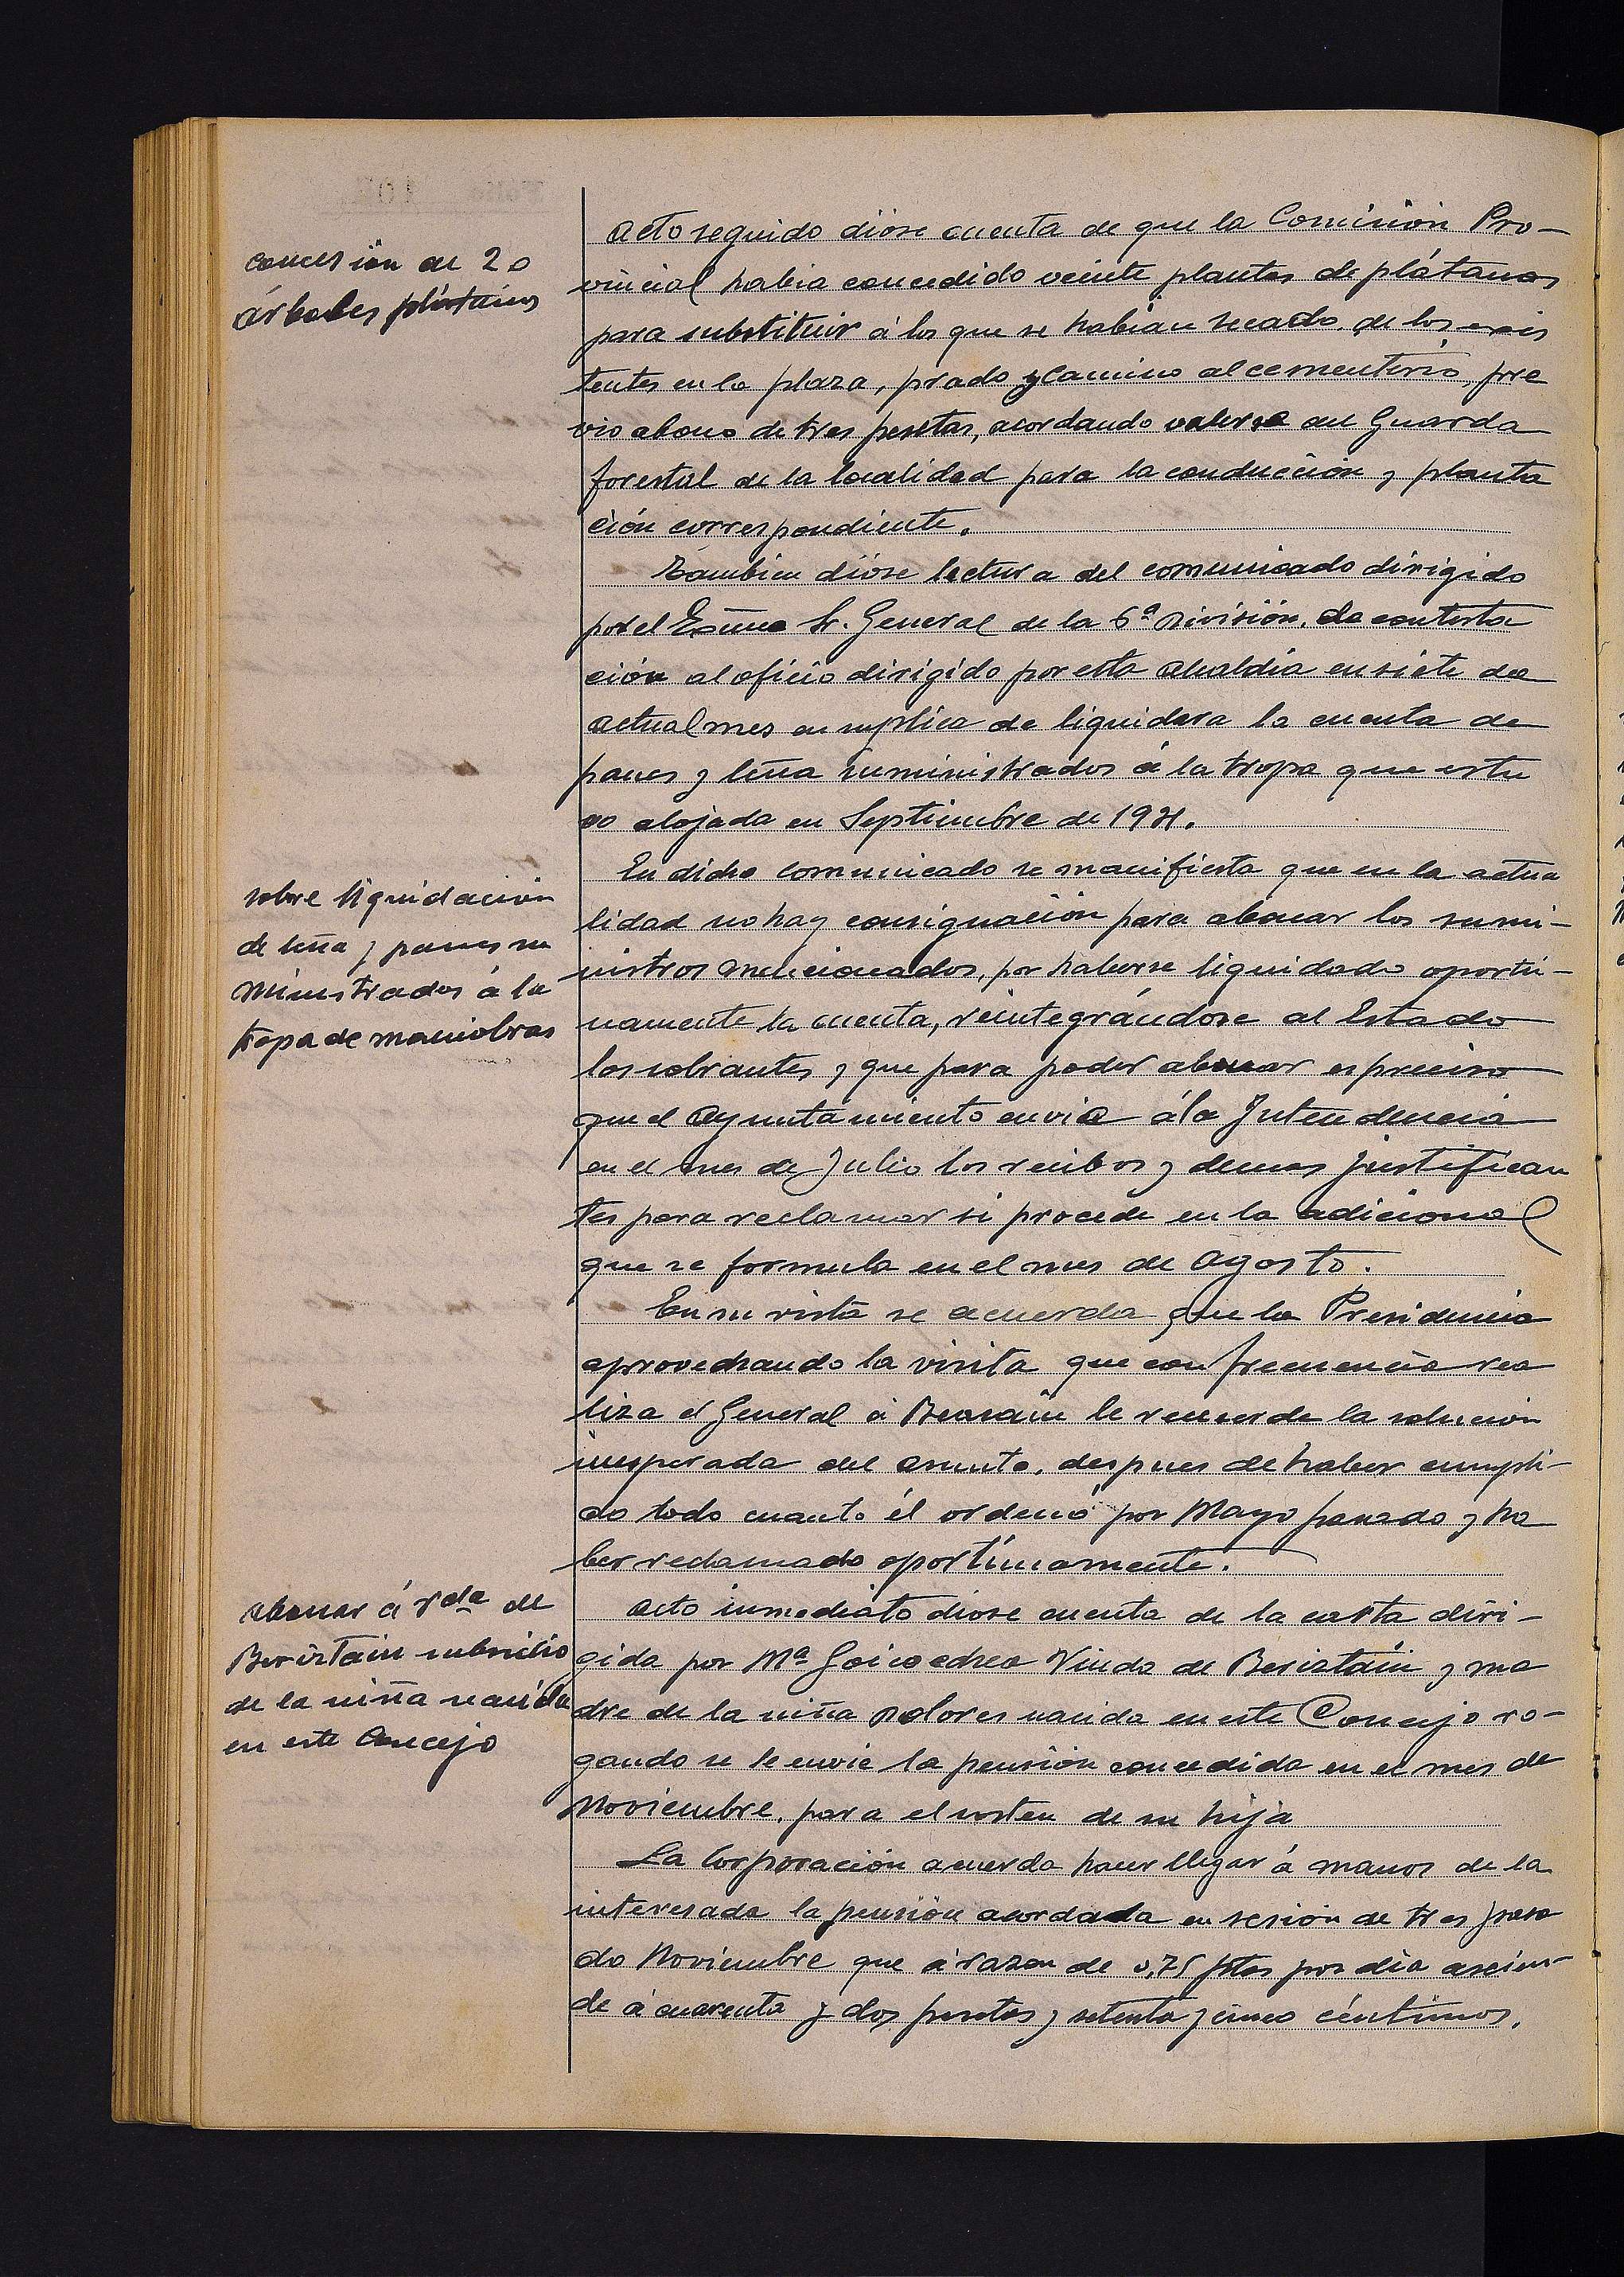 concesión de 20
árboles plátanos
Acto seguido dióse cuenta de que la Comisión Pro-
vincial habia concedido veinte plantas de plátanos
para substituir á los que se habian secado de los exis
tentes en la plaza, prado y camino al cementerio, pre
vio abono de tres pesetas, acordando valerse del Guarda
forestal de la localidad para la conducción y planta
ción correspondiente.
Tambien dióse lectura del comunicado dirigido
por el Exmo Sr. General de la 6ª División, de contesta
ción al oficio dirigido por esta Alcaldía en siete del
actual mes en suplica de liquidara la cuenta de
panes y leña suministrados á la tropa que estu
vo alojada en Septiembre de 1931.
sobre liquidación
de leña y panes su
ministrados á la
tropa de maniobras
En dicho comunicado se manifiesta que en la actua
lidad no hay consignación para abonar los sumi-
nistros mencionados, por haberse liquidado oportu-
namente la cuenta, reintegrándose al Estado
los sobrantes y que para poder abonar es preciso
que el Ayuntamiento envie á la Intendencia
en el mes de Julio los recibos y demas justifican
tes para reclamar si procede en la adicional
que se formula en el mes de Agosto.
En su vista se acuerda que la Presidencia
aprovechando la visita que con frecuencia rea
liza el General á Beasain le recuerde la solución
inesperada del asunto, despues de haber cumpli-
do todo cuanto él ordenó por Mayo pasado y ha
ber reclamado oportunamente.
Abonar á Vda de
Beristain subsidio
de la niña nacida
en este Concejo
Acto inmediato dióse cuenta de la carta diri-
gida por Mª Goicoechea Viuda de Beristain y ma
dre de la niña Dolores nacida en este Concejo ro-
gando se le envie la pensión concedida en el mes de
Noviembre, para el sosten de su hija
La Corporación acuerda hacer llegar á manos de la
interesada la pensión acordada en sesión de tres pasa
do Noviembre que á razon de 0,75 ptas por dia ascien-
de á cuarenta y dos pesetas y setenta y cinco céntimos.